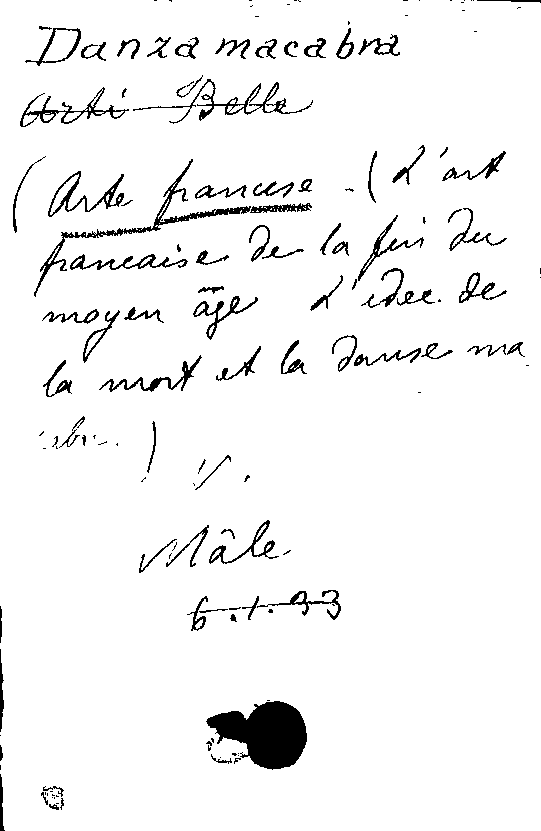 Danza macabra
Arti Belle
(Arte francese - (L'art
francaise de la fin du
moyen âge L'idee de
la mort et la danse ma
cabre.)
V.
Mâle
6.1.33